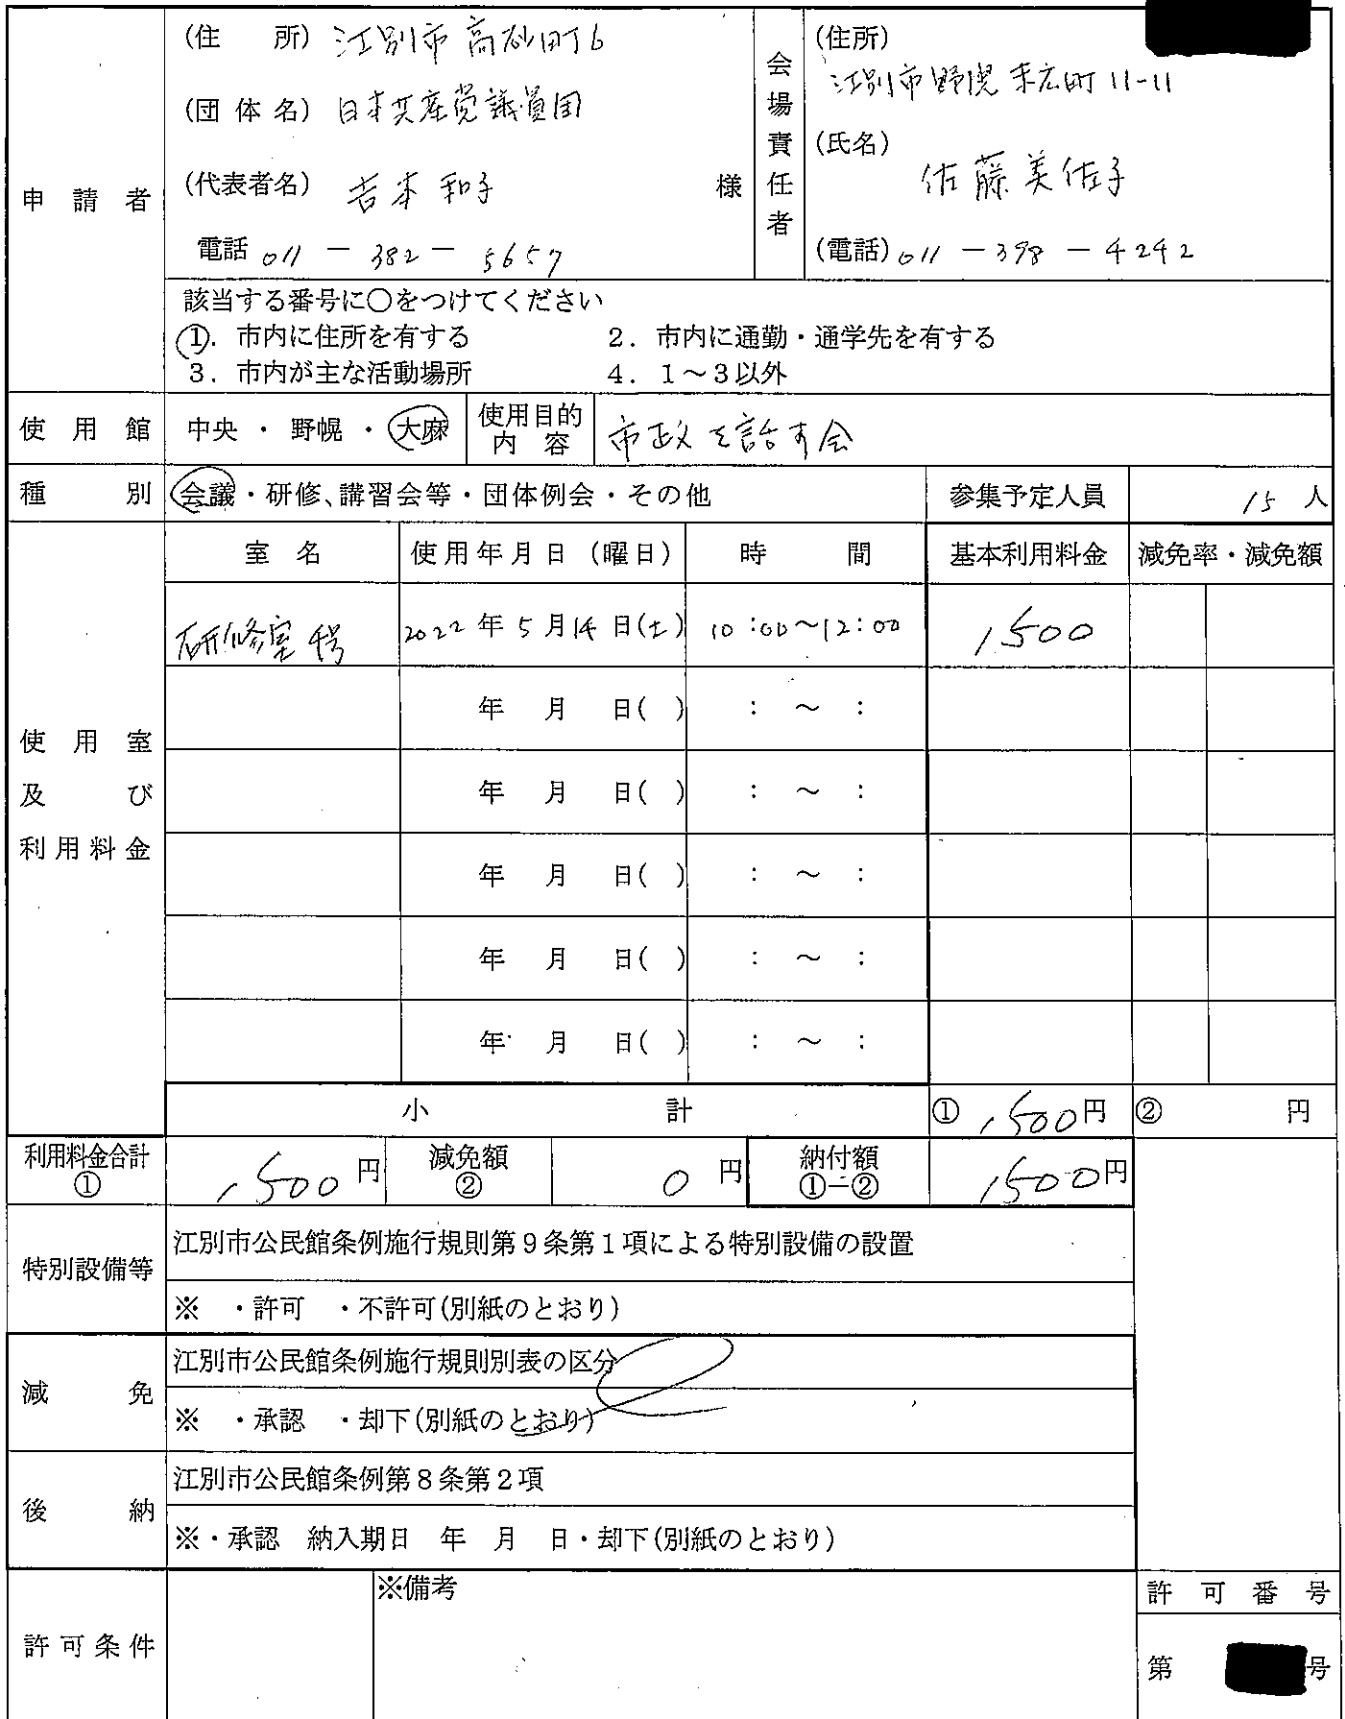 申請者
(住　所) 江別市高砂町6
(団体名) 日本共産党議員団
(代表者名) 吉本和子 様
電話 011 － 382 － 5657
会場責任者
(住所)
江別市野幌末広町11-11
(氏名)
佐藤美佐子
(電話) 011 － 398 － 4242
該当する番号に○をつけてください
①. 市内に住所を有する　2. 市内に通勤・通学先を有する
3. 市内が主な活動場所　4. 1～3以外
使用館　中央・野幌・大麻　使用目的内容　市政を話す会
種別　会議・研修、講習会等・団体例会・その他　参集予定人員　15人
使用室及び利用料金
室名　使用年月日(曜日)　時間　基本利用料金　減免率・減免額
研修室　号　2022年5月14日(土)　10:00～12:00　1500
年　月　日(　)　:　～　:
年　月　日(　)　:　～　:
年　月　日(　)　:　～　:
年　月　日(　)　:　～　:
年　月　日(　)　:　～　:
小計　① 1500円　②　円
利用料金合計①　1500円　減免額②　0円　納付額①－②　1500円
特別設備等
江別市公民館条例施行規則第9条第1項による特別設備の設置
※　・許可　・不許可(別紙のとおり)
減免
江別市公民館条例施行規則別表の区分
※　・承認　・却下(別紙のとおり)
後納
江別市公民館条例第8条第2項
※・承認　納入期日　年　月　日・却下(別紙のとおり)
許可条件
※備考
許可番号
第　号